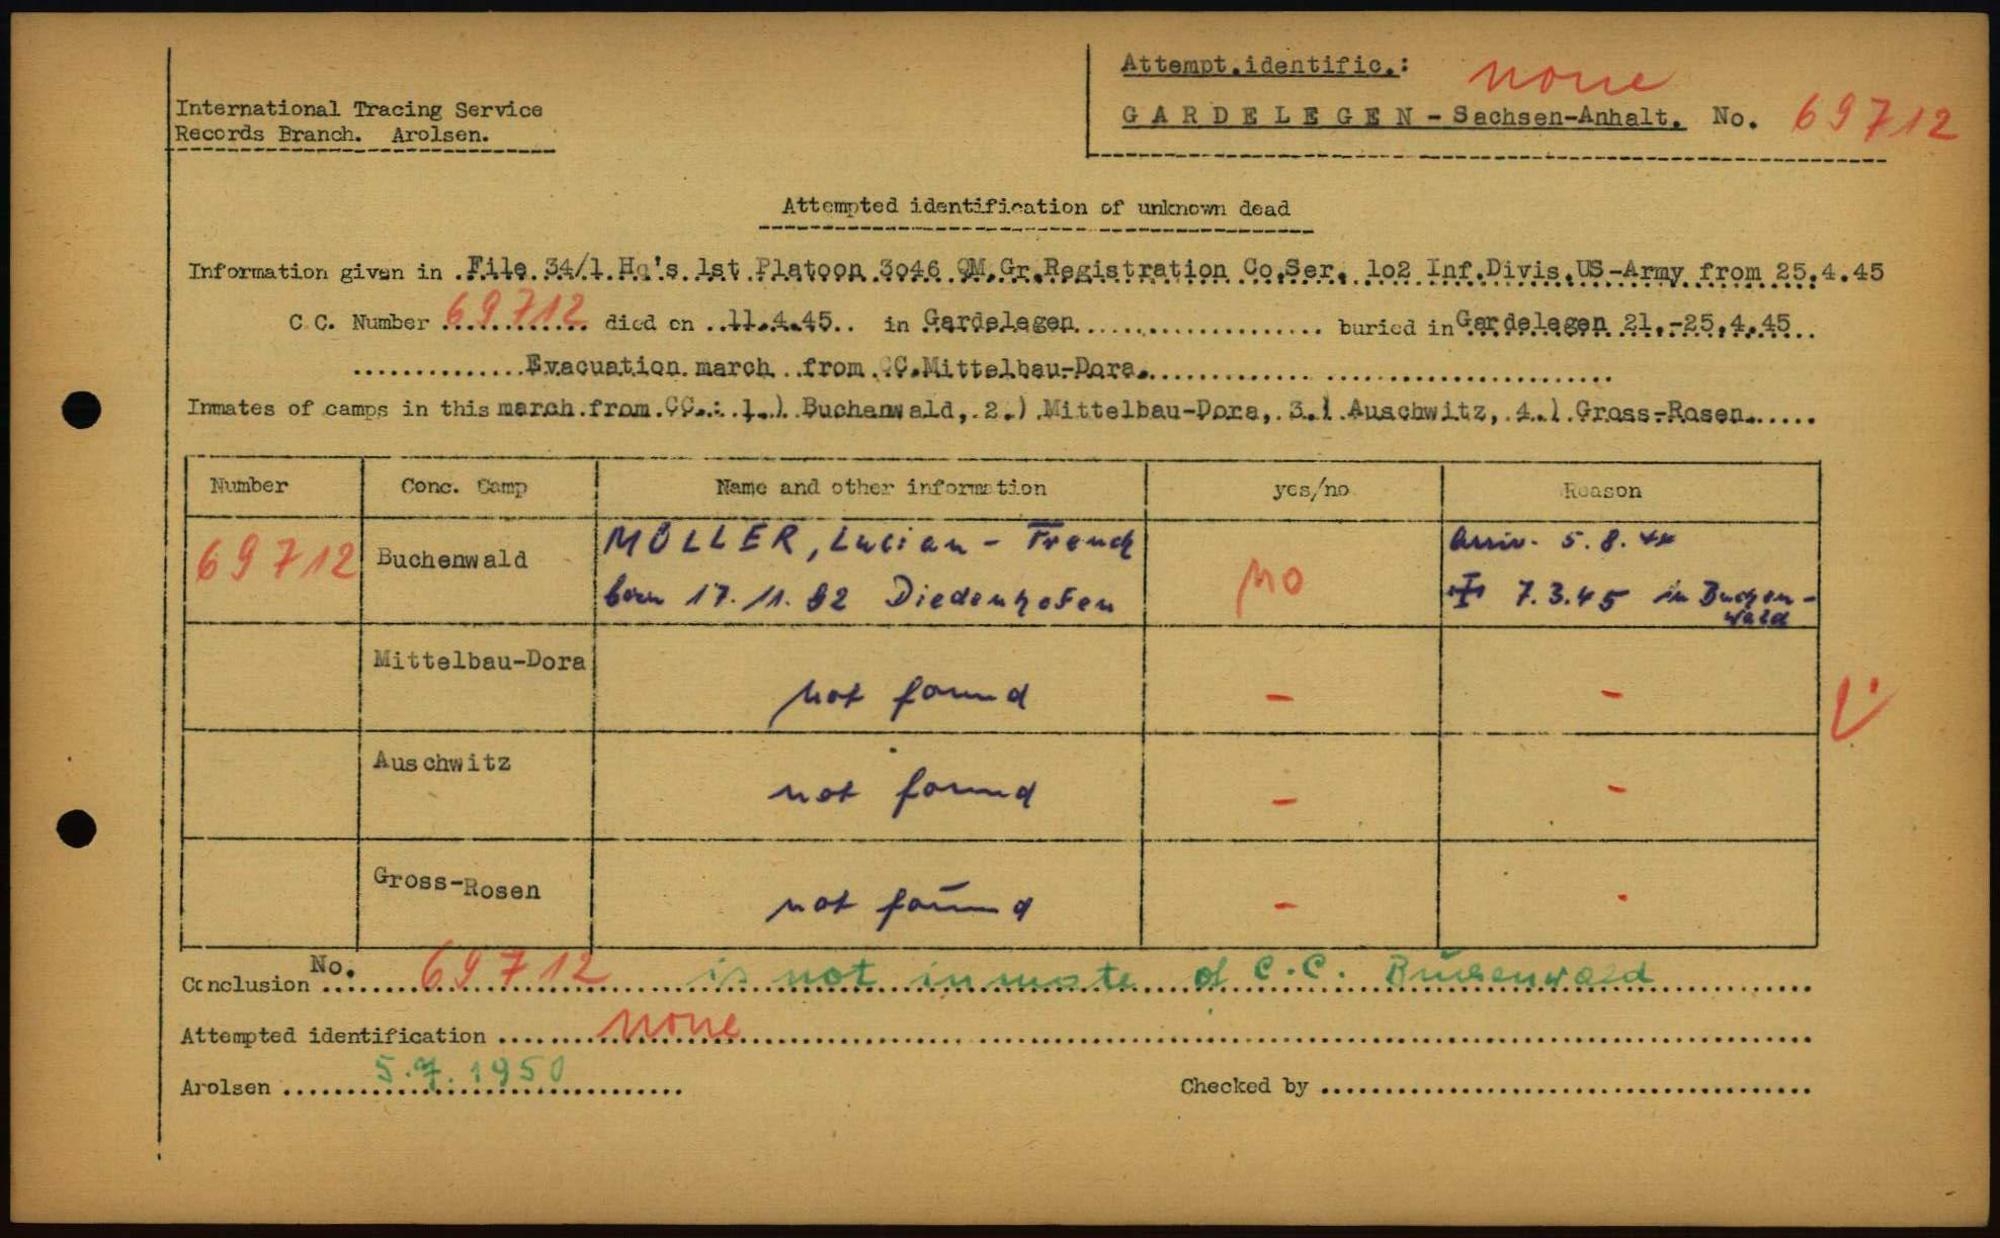 Attempt.identific.: none
International Tracing Service
GARDELEGEN - Sachsen-Anhalt. No. 69712
Records Branch. Arolsen.
Attempted identification of unknown dead
Information given in File 34/1 Hq's 1st Platoon 3o46 QM.Gr.Registration Co.Ser. 1o2 Inf.Divis.US-Army from 25.4.45
C.C. Number 69712 died on 11.4.45 in Gardelegen buried in Gardelegen 21.-25.4.45
Evacuation march from CC.Mittelbau-Dora.
Inmates of camps in this march from CC.: 1.) Buchenwald, 2.) Mittelbau-Dora, 3.) Auschwitz, 4.) Gross-Rosen.
Number Conc. Camp Name and other information yes/no Reason
69712 Buchenwald MÜLLER, Lucian - French no Arriv. 5.8.44
born 17.11.92 Diedenhofen 7.3.45 in Buchen-
wald
Mittelbau-Dora not found - -
Auschwitz not found - -
Gross-Rosen not found - -
Conclusion No. 69712 is not inmate of C.C. Buchenwald
Attempted identification none
Arolsen 5.7.1950 Checked by